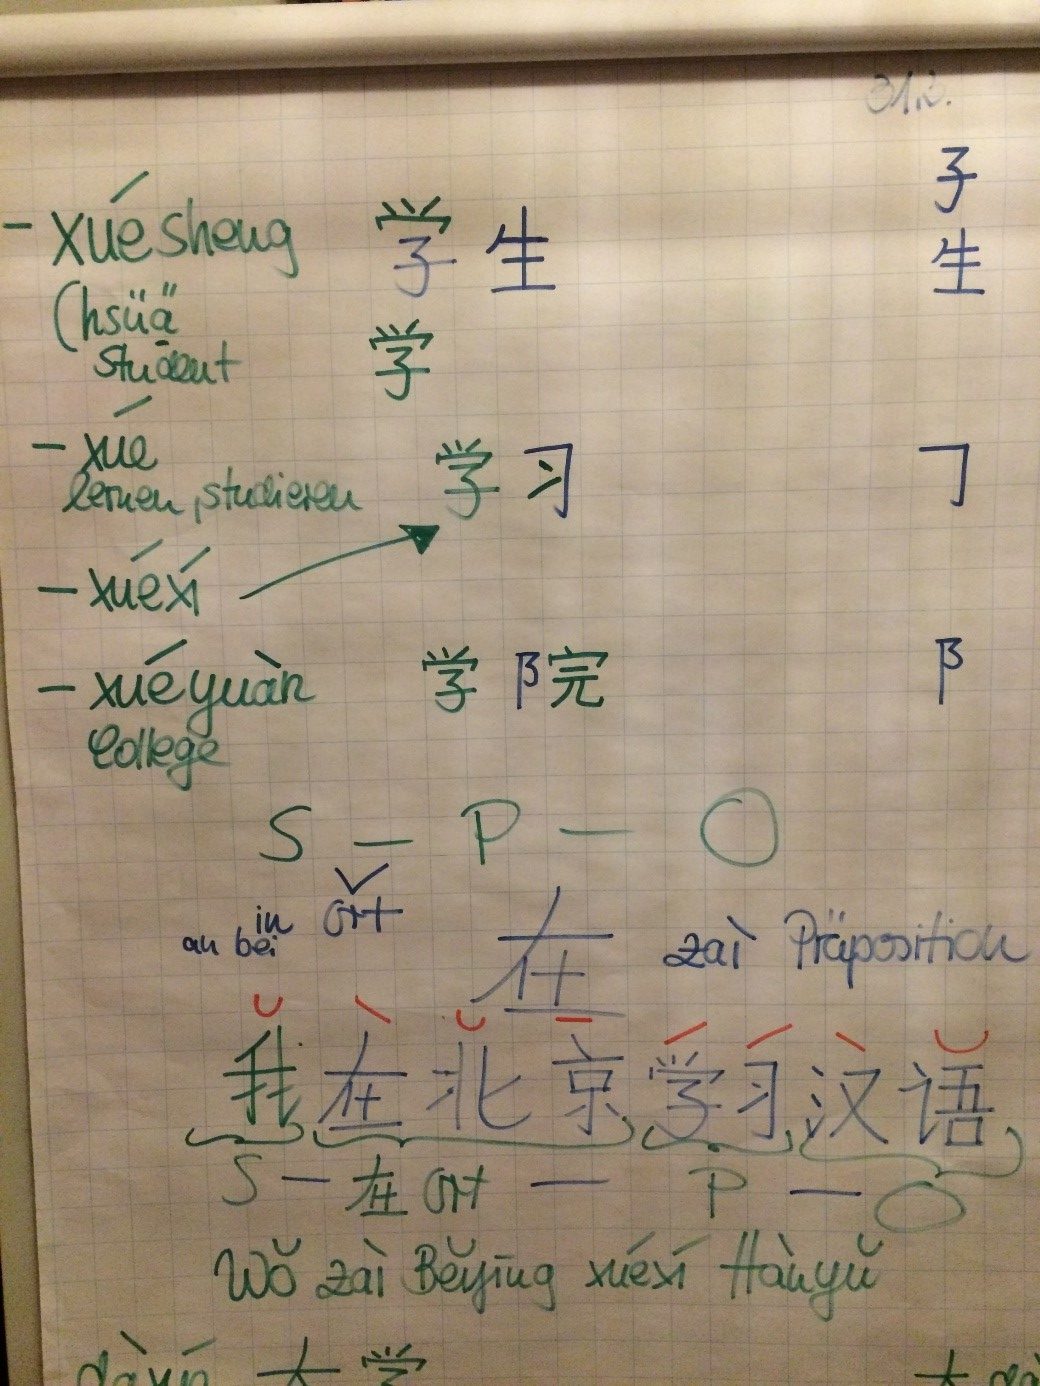 子
- xuésheng 学生 生
(hsüä
student 学
- xué 学习 ㇆
lernen, studieren
- xuéxí
- xuéyuàn 学阝完 阝
College
S - P - O
an bei in Ort 在 zài Präposition
我在北京学习汉语
S - 在 Ort - P - O
Wǒ zài Běijīng xuéxí Hànyǔ
大学 大